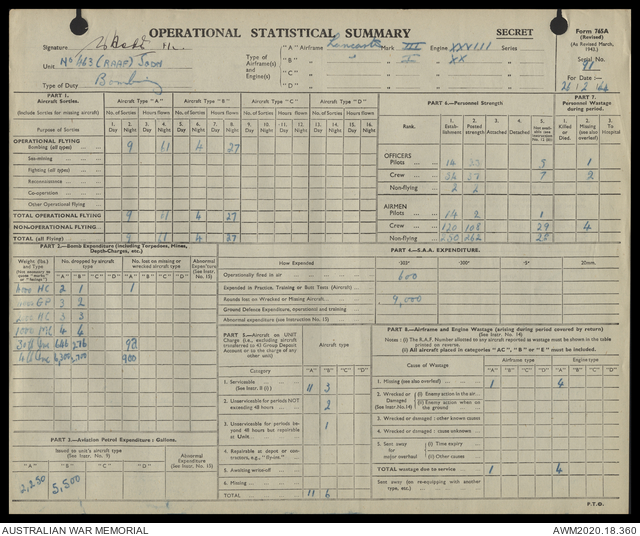 OPERATIONAL STATISTICAL SUMMARY
SECRET
Form 765A
(Revised)
(As Revised March, 1943.)
Signature F/L
Unit No 463 (RAAF) Sqdn
Type of Duty Bombing
Type of Airframe(s) and Engine(s)
"A" Airframe Lancaster Mark III Engine XXVIII Series
"B" " " I " XX "
"C" " " " "
"D" " " " "
Serial No. 91
For Date :—
PART 1.
Aircraft Sorties.
(Include Sorties for missing aircraft)
Aircraft Type "A" Aircraft Type "B" Aircraft Type "C" Aircraft Type "D"
No. of Sorties Hours flown No. of Sorties Hours flown No. of Sorties Hours flown No. of Sorties Hours flown
Purpose of Sorties
1. Day 2. Night 3. Day 4. Night 5. Day 6. Night 7. Day 8. Night 9. Day 10. Night 11. Day 12. Night 13. Day 14. Night 15. Day 16. Night
OPERATIONAL FLYING
Bombing (all types) 9 61 4 27
Sea-mining
Fighting (all types)
Reconnaissance
Co-operation
Other Operational Flying
TOTAL OPERATIONAL FLYING 9 61 4 27
NON-OPERATIONAL FLYING
TOTAL (all Flying) 9 61 4 27
PART 6.—Personnel Strength
Rank.
1. Establishment 2. Posted strength 3. Attached 4. Detached 5. Not available (see instruction No. 12 (b))
PART 7.
Personnel Wastage during period.
1. Killed or Died. 2. Missing (see also overleaf) 3. To Hospital
OFFICERS
Pilots 14 5 1
Crew 7 2
Non-flying 2 2
AIRMEN
Pilots 14 2 1
Crew 120 108 29 4
Non-flying 262
PART 2.—Bomb Expenditure (including Torpedoes, Mines, Depth-Charges, etc.)
Weight (lbs.) and Type
No. dropped by aircraft type
No. lost on missing or wrecked aircraft type
Abnormal Expen'ture (See Instr. No. 13)
"A" "B" "C" "D" "A" "B" "C" "D"
HC 2 1 1
GP 3 2
HC 3 3
1000 MC 4 4
Inc 646 276 92
900
PART 4.—S.A.A. EXPENDITURE.
How Expended ·303" ·300" ·5" 20mm.
Operationally fired in air 600
Expended in Practice, Training or Butt Tests (Aircraft)
Rounds lost on Wrecked or Missing Aircraft 9,000
Ground Defence Expenditure, operations and training
Abnormal expenditure (see Instruction No. 13)
PART 5.—Aircraft on UNIT Charge (i.e., excluding aircraft transferred to 43 Group Deposit Account or to the charge of any other unit)
Category "A" "B" "C" "D"
1. Serviceable (See Instr. 8 (i)) 11 3
2. Unserviceable for periods NOT exceeding 48 hours 2
3. Unserviceable for periods beyond 48 hours but repairable at Unit 1
4. Repairable at depot or contractors, e.g., "fly-in"
5. Awaiting write-off
6. Missing
TOTAL 11 6
PART 8.—Airframe and Engine Wastage (arising during period covered by return)
(See Instr. No. 14)
Notes : (i) The R.A.F. Number allotted to any aircraft reported as wastage must be shown in the table printed on reverse.
(ii) All aircraft placed in categories "AC", "B" or "E" must be included.
Cause of Wastage
Airframe type Engine type
"A" "B" "C" "D" "A" "B" "C" "D"
1. Missing (see also overleaf) 1 4
2. Wrecked or Damaged (See Instr. No.14) (i) Enemy action in the air
(ii) Enemy action when on the ground
3. Wrecked or damaged : other known causes
4. Wrecked or damaged : cause unknown
5. Sent away for major overhaul (i) Time expiry
(ii) Other causes
TOTAL wastage due to service 1 4
Sent away (in miles) for re-equipping with another type, etc.)
PART 3.—Aviation Petrol Expenditure : Gallons.
Issued to unit's aircraft type (See Instr. No. 9)
Abnormal Expenditure (See Instr. No. 13)
"A" "B" "C" "D"
2,250 5,500
P.T.O.
AUSTRALIAN WAR MEMORIAL
AWM2020.18.360